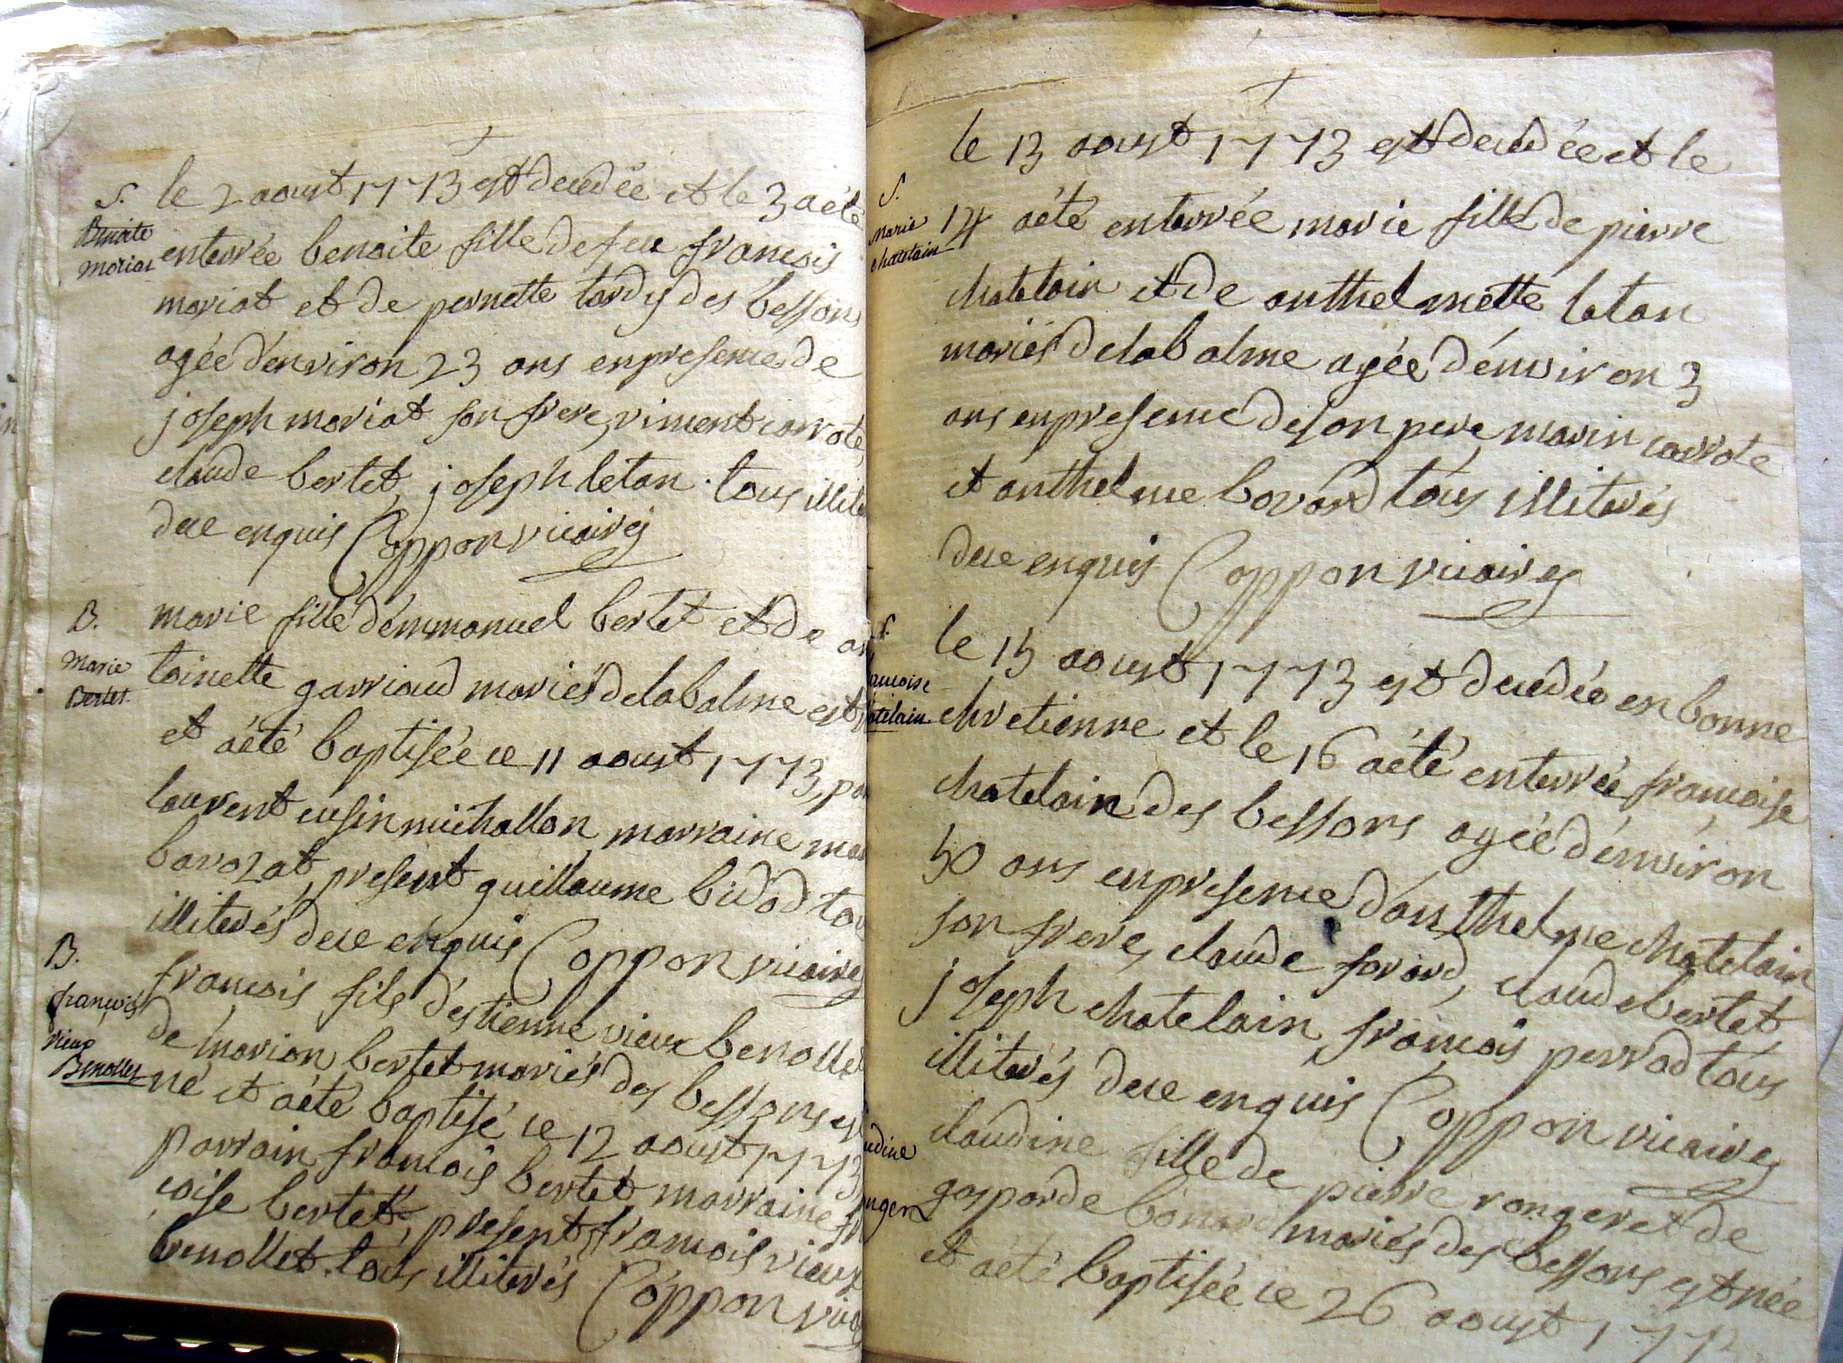 S.
Benoite
moriat
le 2 aoust 1773 est decedée et le 3 a été
enterrée benoite fille de feu francois
moriat et de pernette tardy des bessons
agée d'environ 23 ans en presence de
joseph moriat son frere, vincent carrote,
claude bertet, joseph letan. tous illite
de ce enquis Coppon vicaire
B.
Marie
Bertet.
marie fille d'emmanuel bertet et de an
toinette garriaud mariés de la balme est
et a été baptisée ce 11 aoust 1773, pa
laurent cusin michallon marraine ma
bavozat, present guillaume bidod tou
illiterés de ce enquis Coppon vicaire
B.
françois
vieux
Benollet
francois fils d'estienne vieux benollet
de marion bertet mariés des bessons es
né et a été baptisé ce 12 aoust 1773
parrain francois bertet marraine fr
coise bertet, present francois vieux
benollet tous illiterés Coppon vica
S.
Marie
chatelain
le 13 aoust 1773 est decedée et le
14 a été enterrée marie fille de pierre
chatelain et de anthelmette letan
mariés de la balme agée d'environ 3
ans en presence de son pere, marin carrote
et anthelme bovard tous illiterés
de ce enquis Coppon vicaire
S.
ancoise
atelain
le 15 aoust 1773 est decedée en bonne
chretienne et le 16 a été enterrée francoise
chatelain des bessons agée d'environ
50 ans en presence d'anthelme chatelain
son frere, claude forard, claude bertet
joseph chatelain francois perrad tous
illiterés de ce enquis Coppon vicaire
udine
nger
claudine fille de pierre ronger et de
gasparde mariés des bessons est née
et a été baptisée ce 26 aoust 177